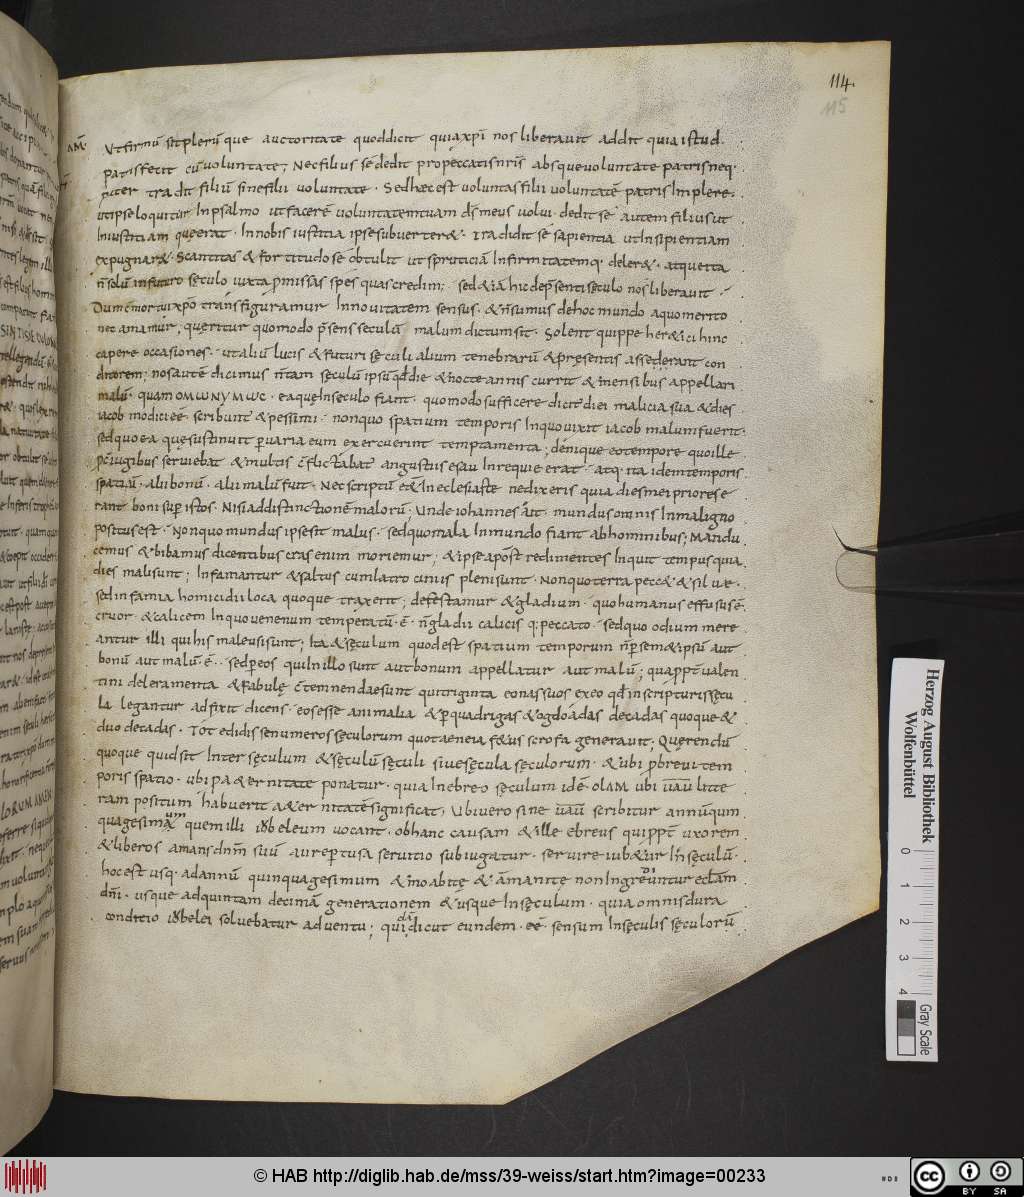 114.
115
AM̅
Ut firmū sit plerūque auctoritate quod dicit quia xp̄i nos liberauit addit quia istud
patris fecit cū uoluntate; Nec filius se dedit pro peccatis nr̄is absque uoluntate patris neq·
pater tradit filiū sine filii uoluntate· Sed haec est uoluntas filii uoluntatē patris Implere·
ut ipse loquitur In psalmo ut facerē uoluntatem tuam d̄s meus uolui· dedit se autem filius ut
Iniustitiam quę erat· In nobis iustitia ipse subuerter&· Tradidit se sapientia ut Insipientiam
expugnar&· Scantitas & fortitudo se obtulit ut spurticiā Infirmitatemq· deler&· atque ita
n̄ solū in futuro sęculo iuxta p̄missas spes quas credim; sed & iā hic de p̄senti sęculo nos liberauit·
Dum cōmortui xp̄o transfiguramur In nouitatem sensus· & n̄ sumus de hoc mundo a quo merito
nec amamur; quęritur quomodo p̄sens seculū malum dictum sit· Solent quippe her&ici hinc
capere occasiones· ut aliū lucis & futuri sęculi alium tenebrarū & pręsentis asseęerant con
ditorem; nos autē dicimus n̄ tam sęculū ipsū qd̄ die & nocte annis currit & mensibus appellari
malū· quam OMωNYMωC· ea quę In seculo fiant· quomodo sufficere dicit diei malicia sua & dies
iacob modici eē scribunt & pessimi· non quo spatium temporis In quo uixit iacob malum fuerit·
sed quo ea quę sustinuit p uaria eum exercuerint temptamenta; denique eo tempore quo ille
p c̄iugibus seruiebat & multis c̄flictabat angustiis esau In requie erat· atq· ita idem temporis
spatiū· alii bonū· alii malū fuit· Nec scriptū e&In eclesiaste ne dixeris quia dies mei priores e
rant boni sup istos· Nisi ad distinctionē malorū; Unde iohannes ait· mundus omnis In maligno
positus est· Non quo mundus ipse sit malus· sed quo mala In mundo fiant ab hominibus; Mandu
cemus & bibamus dicentibus cras enim moriemur; & ipse apost redimentes Inquit tempus quia
dies mali sunt; Infamantur & saltus cum latrociniis pleni sunt· Non quo terra pecc& & siluę·
sed infamia homicidii loca quoque traxerit; detestamur & gladium· quo humanus effusus ē
cruor· & calicem In quo uenenum temperatū· ē· n̄ gladii calicis q· peccato· sed quo odium mere
antur illi qui his male usi sunt; Ita & sęculum quod est spatium temporum n̄ p sem & ipsū aut
bonū aut malū ē·· sed p eos qui In illo sunt aut bonum appellatur aut malū; quappt ualen
tini deleramenta & fabulę c̄temnendae sunt qui triginta eonas suos ex eo qd̄ in scripturis sęcu
la legantur adfixit dicens· eos esse animalia & p quadrigas & ogdoadas decadas quoque &
duo decadas· Tot edidisse numeros sęculorum quot aeneia fetus scrofa generauit; Querendū
quoque quid sit Inter sęculum & sęculū sęculi siue sęcula sęculorum· & ubi p breui tem
poris spatio· ubi p a&ernitate ponatur· quia In ebreo sęculum idē· OLAM ubi uau litte
ram positum habuerit a&ernitatē significat; Ubi uero sine uau scribitur annū qum
quagesimum quem illi iobeleum uocant· ob hanc causam & ille ebreus qui ppt uxorem
& liberos amans dn̄m suū aure pertusa seruitio subiugatur· seruire iub&ur In sęculū·
hoc est usq· ad annū quinquagesimum & moabitę & āmanitę non Ingrediuntur ecl̄am
dn̄i· usque ad quintam decimā generationem & usque In sęculum· quia omnis dura
conditio iobelei soluebatur aduentu; quidā dicut eundem· eē· sensum In sęculis sęculorū
Herzog August Bibliothek
Wolfenbüttel
0 1 2 3 4
Gray Scale
© HAB http://diglib.hab.de/mss/39-weiss/start.htm?image=00233
cc BY SA